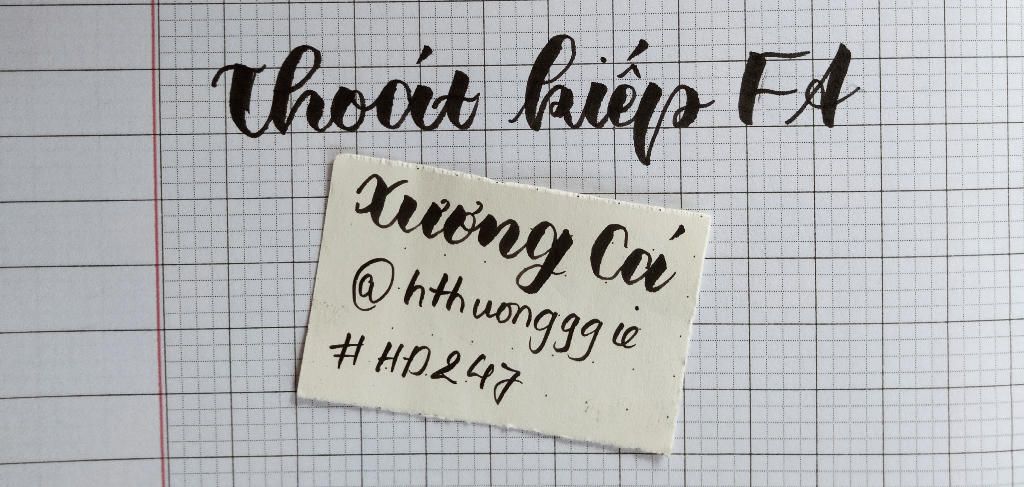 Thoát kiếp FA
Xương Cá
@hthuongggie
#HD247